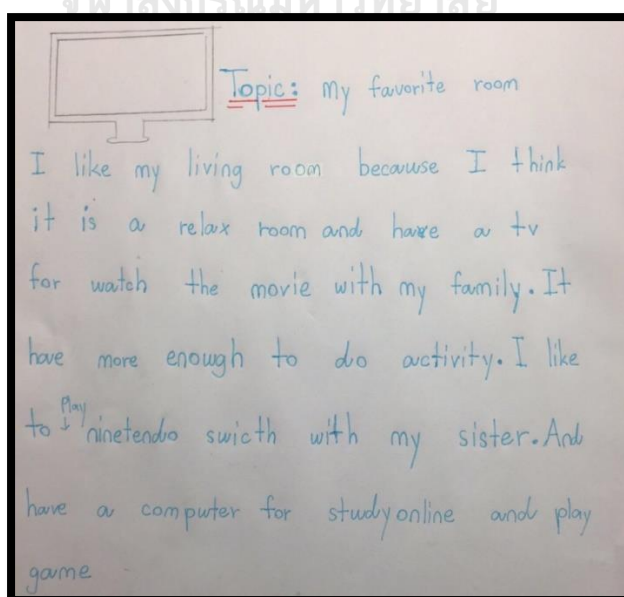 จุฬาลงกรณ์มหาวิทยาลัย
Topic: My favorite room
I like my living room because I think
it is a relax room and have a tv
for watch the movie with my family. It
have more enough to do activity. I like
to play ninetendo swicth with my sister. And
have a computer for study online and play
game